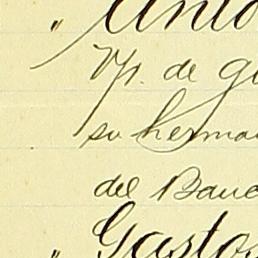 " Anto
Vp. de gi
su herman
del Banc
" Gastos